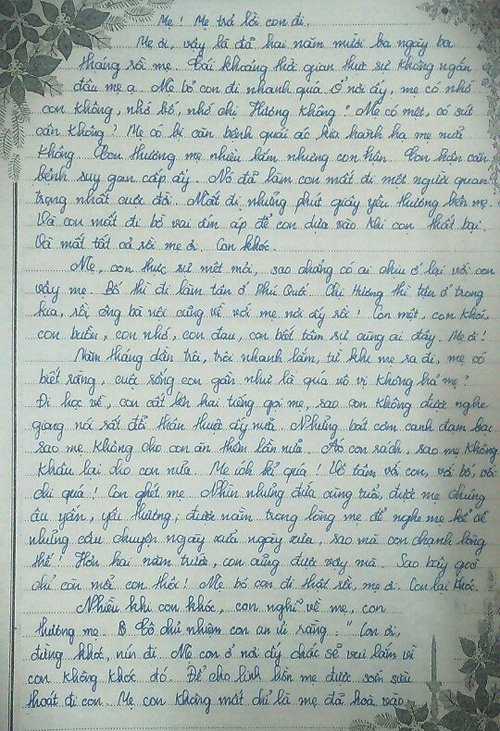 Mẹ! Mẹ trả lời con đi.
Mẹ ơi, vậy là đã hai năm mười ba ngày ba
tháng rồi mẹ. Cái khoảng thời gian thật sự không ngắn
đâu mẹ ạ. Mẹ bỏ con đi nhanh quá. Ở nơi ấy, mẹ có nhớ
con không, nhớ bố, nhớ chị Hương không? Mẹ có mệt, có sút
cân không? Mẹ có bị căn bệnh quái ác kia hành hạ mẹ nữa
không. Con thương mẹ nhiều lắm nhưng con hận. Con hận căn
bệnh suy gan cấp ấy. Nó đã làm con mất đi một người quan
trọng nhất cuộc đời. Mất đi những phút giây yêu thương bên mẹ.
Và con mất đi bờ vai ấm áp để con dựa vào khi con thất bại.
Và mất tất cả rồi mẹ ơi. Con khóc.
Mẹ, con thực sự mệt mỏi, sao chẳng có ai chịu ở lại với con
vậy mẹ. Bố thì đi làm tận ở Phú Quới. Chị Hương thì tận ở trong
kia, rồi ông bà nội cũng về với mẹ nơi ấy rồi! Con mệt, con khóc,
con buồn, con nhớ, con đau, con biết tâm sự cùng ai đây. Mẹ ơi!
Năm tháng dần trôi, trôi nhanh lắm, từ khi mẹ ra đi, mẹ có
biết rằng, cuộc sống con gần như là quá vô vị không hả mẹ?
Đi học về, con cất lên hai tiếng gọi mẹ, sao con không được nghe
giọng nói rất đỗi thân thuộc ấy nữa. Những bát cơm canh đạm bạc
sao mẹ không cho con ăn thêm lần nữa. Áo con rách, sao mẹ không
khâu lại cho con nữa. Mẹ ích kỉ quá! Vô tâm với con, với bố, với
chị quá! Con ghét mẹ. Nhìn những đứa cùng tuổi, được mẹ chúng
âu yếm, yêu thương, được nằm trong lòng mẹ để nghe mẹ kể về
những câu chuyện ngày xửa ngày xưa, sao mà con chạnh lòng
thế! Hơn hai năm trước, con cũng được vậy mà. Sao bây giờ
chỉ còn mỗi con thôi! Mẹ bỏ con đi thật rồi, mẹ ơi. Con lại khóc.
Nhiều khi con khóc, con nghĩ về mẹ, con
thương mẹ. Cô chủ nhiệm con an ủi rằng: "Con ơi,
đừng khóc, nín đi. Mẹ con ở nơi ấy chắc sẽ vui lắm vì
con không khóc đó. Để cho linh hồn mẹ được sớm siêu
thoát đi con. Mẹ con không mất chỉ là mẹ đã hoà vào